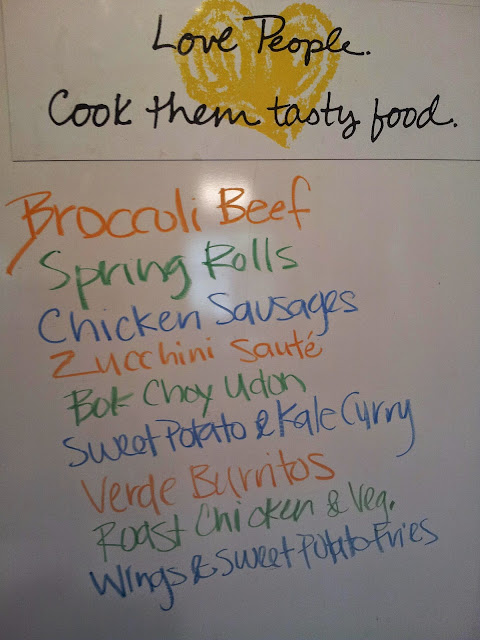 Love People.
Cook them tasty food.
Broccoli Beef
Spring Rolls
Chicken Sausages
Zucchini Sauté
Bok Choy Udon
Sweet Potato & Kale Curry
Verde Burritos
Roast Chicken & Veg.
Wings & Sweet Potato Fries